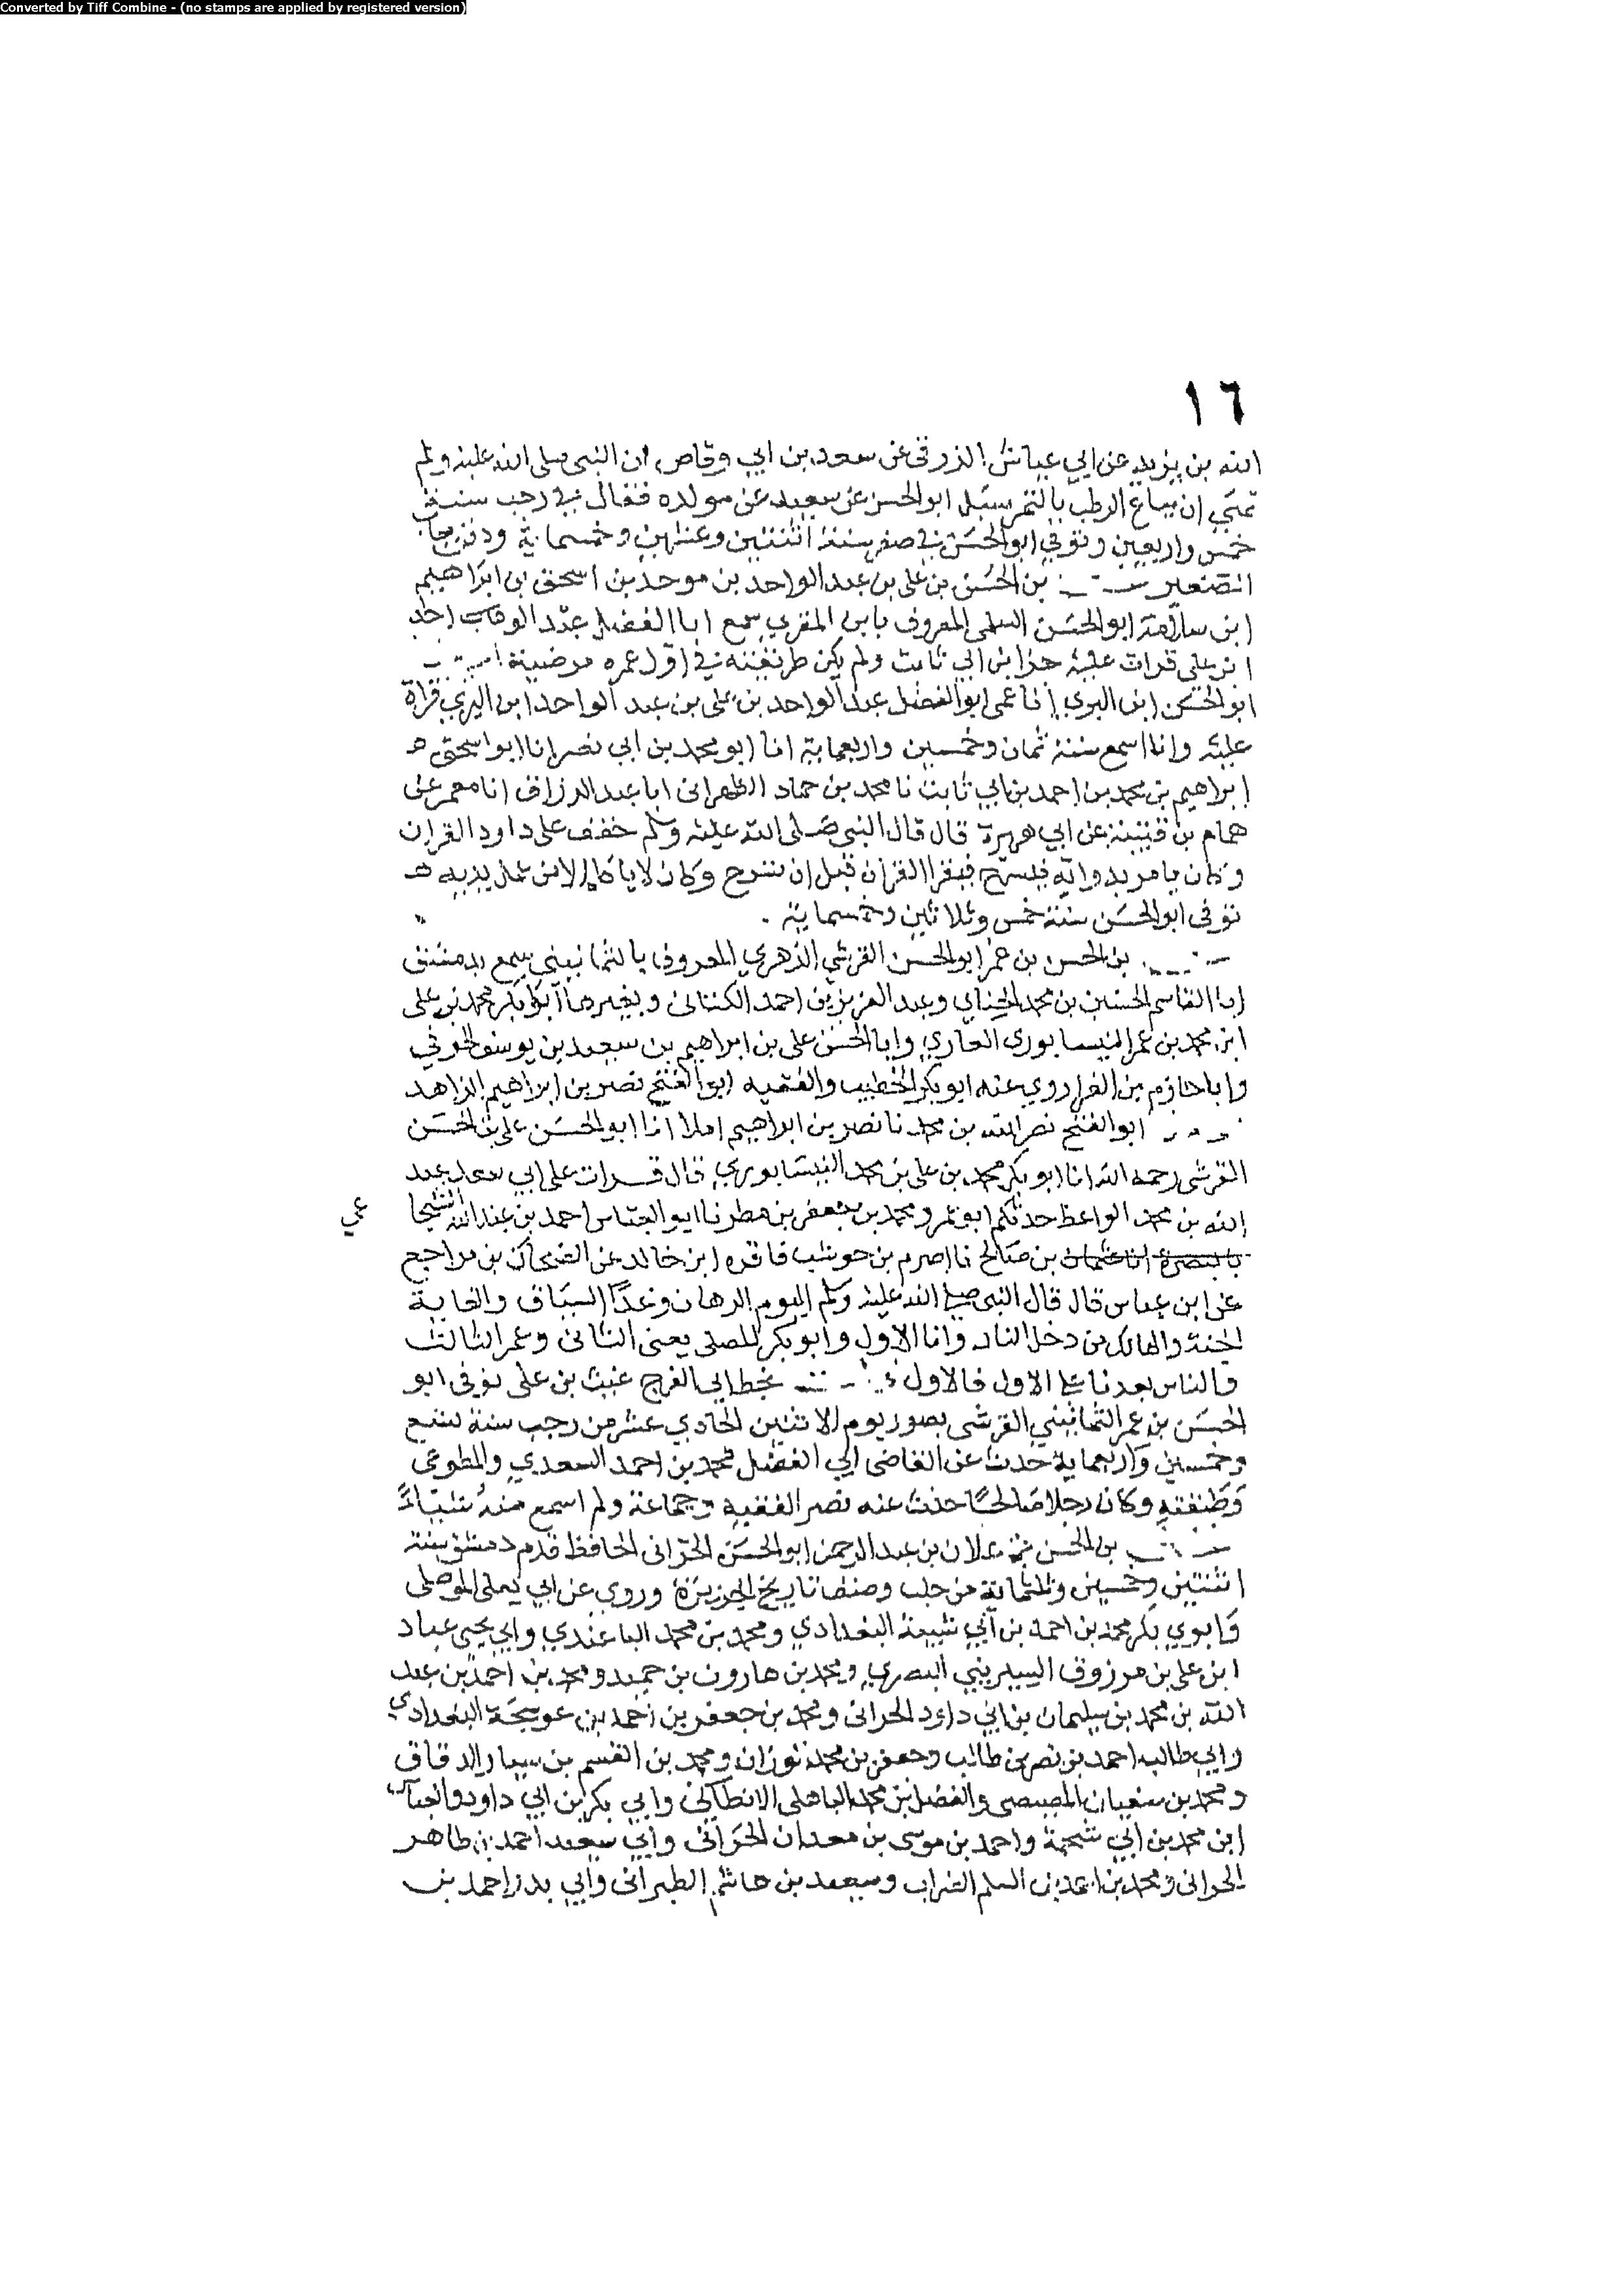 Converted by Tiff Combine - (no stamps are applied by registered version)
١٦
الله بن يزيد عن ابي عياش الزرقي عن سعد بن ابي وقاص ان النبي صلى الله عليه وسلم
نهى ان يباع الرطب بالتمر سئل ابو الحسن عن سعيد عن مولده فقال في رجب سنة
خمس واربعين وتوفي ابو الحسن في صفر سنة اثنتين وعشرين وخمسماية ودفن بباب
الصغير بن الحسن بن علي بن عبد الواحد بن موحد بن اسحق بن ابراهيم
ابن سلامة ابو الحسن السلمي المعروف بابن المقري سمع ابا الفضل عبد الواحد
ابن علي قرات عليه جزا ابن ابي ثابت ولم يكن طريقته في اول عمره مرضية
ابو الحسن ابن البري انا عمي ابو الفضل عبد الواحد بن علي بن عبد الواحد ابن البري قراة
عليه وانا اسمع سنة ثمان وخمسين واربعماية انا ابو محمد بن ابي نصر انا ابو اسحق
ابراهيم بن محمد بن احمد بن ابي ثابت نا محمد بن حماد الظهراني انا عبد الرزاق انا معمر عن
همام بن قتيبة عن ابي هريرة قال قال النبي صلى الله عليه وسلم خفف على داود القران
وكان يامر بدوابه فيسرج فيقرا القران قبل ان تسرج وكان لا ياكل الا من عمل يديه
توفي ابو الحسن سنة خمس وثلاثين وخمسماية
بن الحسن بن عمر ابو الحسن القرشي الزهري المعروف بالثمانيني سمع بدمشق
ابا القاسم الحسين بن محمد الحنائي وعبد العزيز بن احمد الكتاني وبغيرها ابو بكر محمد بن علي
ابن محمد بن عمر النيسابوري الغازي وابا الحسن علي بن ابراهيم بن سعيد بن يوسف الحوفي
وابا حازم بن الفرا روى عنه ابو بكر الخطيب والفقيه ابو الفتح نصر بن ابراهيم الزاهد
ابو الفتح نصر الله بن محمد نا نصر بن ابراهيم املا انا ابو الحسن علي بن الحسن
القرشي رحمه الله انا ابو بكر محمد بن علي بن محمد النيسابوري قال قرات على ابي سعد عبد
الله بن محمد الواعظ حدثكم ابو عمرو محمد بن جعفر بن مطر نا ابو العباس احمد بن عبد الله
بالبصرة انا عثمان بن صالح نا اصرم بن حوشب نا قره ابن خالد عن الضحاك بن مزاحم
عن ابن عباس قال قال النبي صلى الله عليه وسلم اليوم الرهان وغدا السباق والغاية
الجنة والهالك من دخل النار وانا الاول وابو بكر المصلي يعني الثاني وعمر الثالث
والناس بعدنا على الاول فالاول بخط ابي الفرج غيث بن علي توفي ابو
الحسن بن عمر الثمانيني القرشي بصور يوم الاثنين الحادي عشر من رجب سنة تسع
وخمسين واربعماية حدث عن القاضي ابي الفضل محمد بن احمد السعدي والمطوعي
وطبقته وكان رجلا صالحا حدث عنه نصر الفقيه وجماعة ولم اسمع منه شيئا
بن الحسن بن علان بن عبد الرحمن ابو الحسن الحراني الحافظ قدم دمشق سنة
اثنتين وخمسين وثلثماية من حلب وصنف تاريخ الجزيرة وروى عن ابي يعلى الموصلي
وابوي بكر محمد بن احمد بن ابي شيبة البغدادي ومحمد بن محمد الباغندي وابي يحيى عباد
ابن علي بن مرزوق السيريني البصري ومحمد بن هارون بن حميد ومحمد بن احمد بن عبد
الله بن محمد بن سليمان بن ابي داود الحراني ومحمد بن جعفر بن احمد بن عوسجة البغدادي
وابي طالب احمد بن نصر بن طالب وجعفر بن محمد توزان ومحمد بن القسم بن سيار الدقاق
ومحمد بن سفيان المصيصي والفضل بن محمد الباهلي الانطاكي وابي بكر بن ابي داود والعباس
ابن محمد بن ابي شحمة واحمد بن موسى بن معدان الحراني وابي سعيد احمد بن طاهر
الحراني ومحمد بن احمد بن السلم الضراب وسعيد بن هاشم الطبراني وابي بدر احمد بن